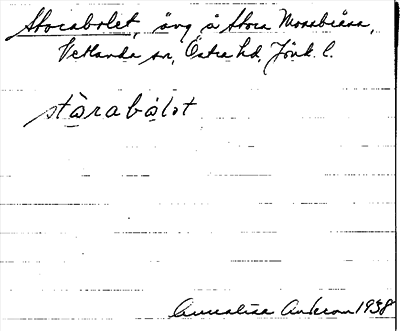 Storabolet, äng å Stora Mossbiåsa,
Vetlanda sn, Östra hd, Jönk. l.
stårabålət
Annalisa Anderson 1938